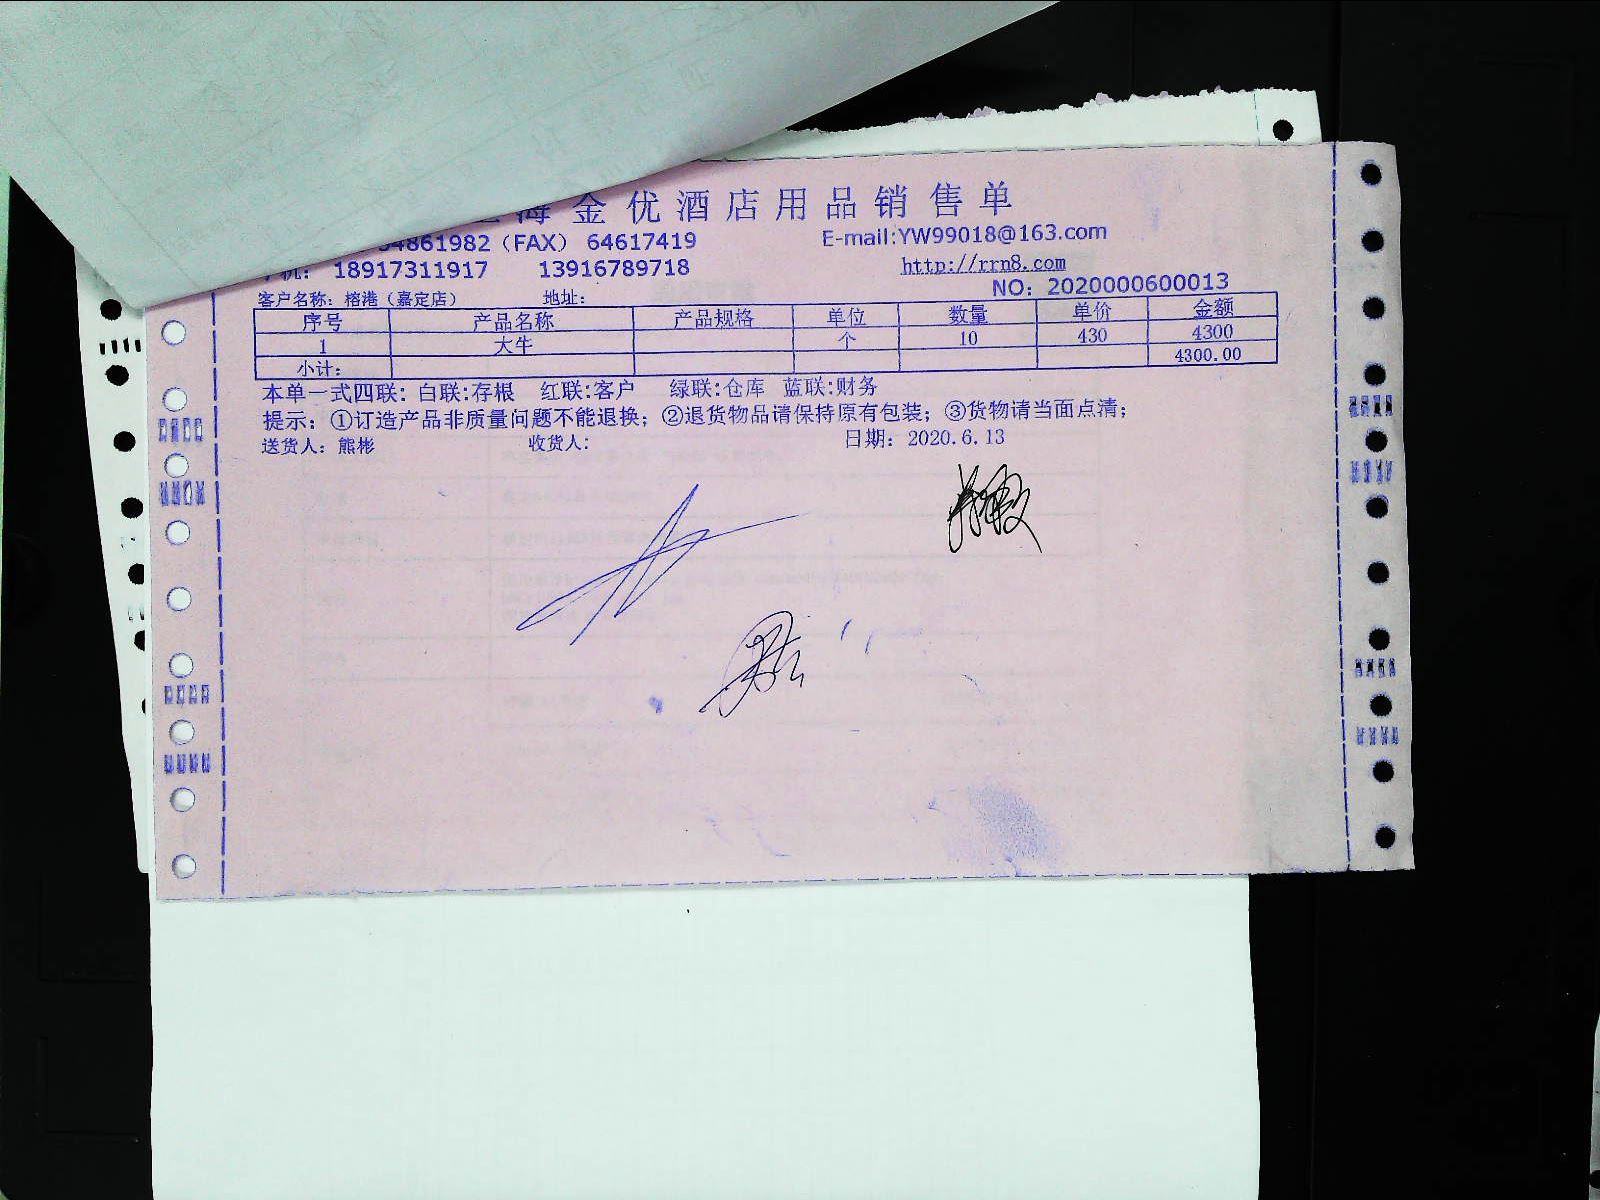 海金优酒店用品销售单
4861982（FAX） 64617419 E-mail:YW99018@163.com
机： 18917311917 13916789718 http://rrn8.com
NO：2020000600013
客户名称：榕港（嘉定店） 地址：
序号 产品名称 产品规格 单位 数量 单价 金额
1 大牛 个 10 430 4300
小计： 4300.00
本单一式四联：白联:存根 红联:客户 绿联:仓库 蓝联:财务
提示：①订造产品非质量问题不能退换；②退货物品请保持原有包装；③货物请当面点清；
送货人：熊彬 收货人： 日期：2020.6.13